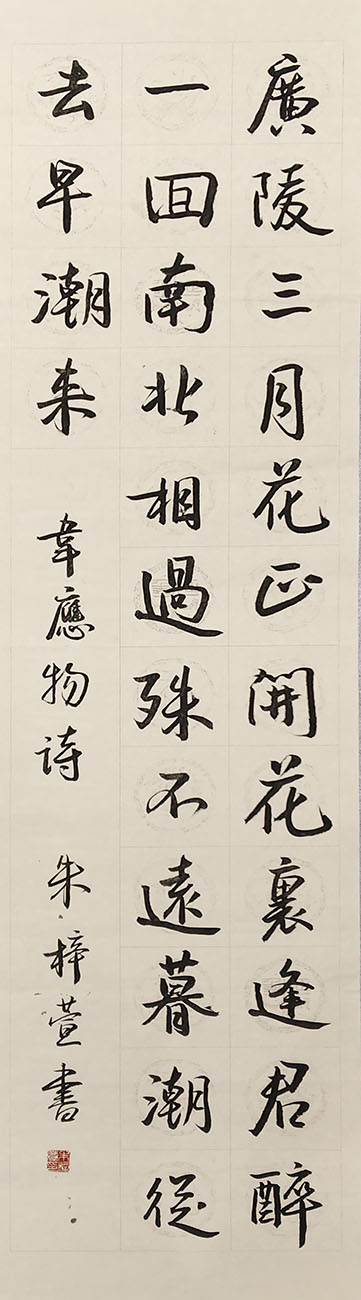 廣陵三月花正開花裏逢君醉
一回南北相過殊不遠暮潮從
去早潮来
韋應物詩
朱梓萱書